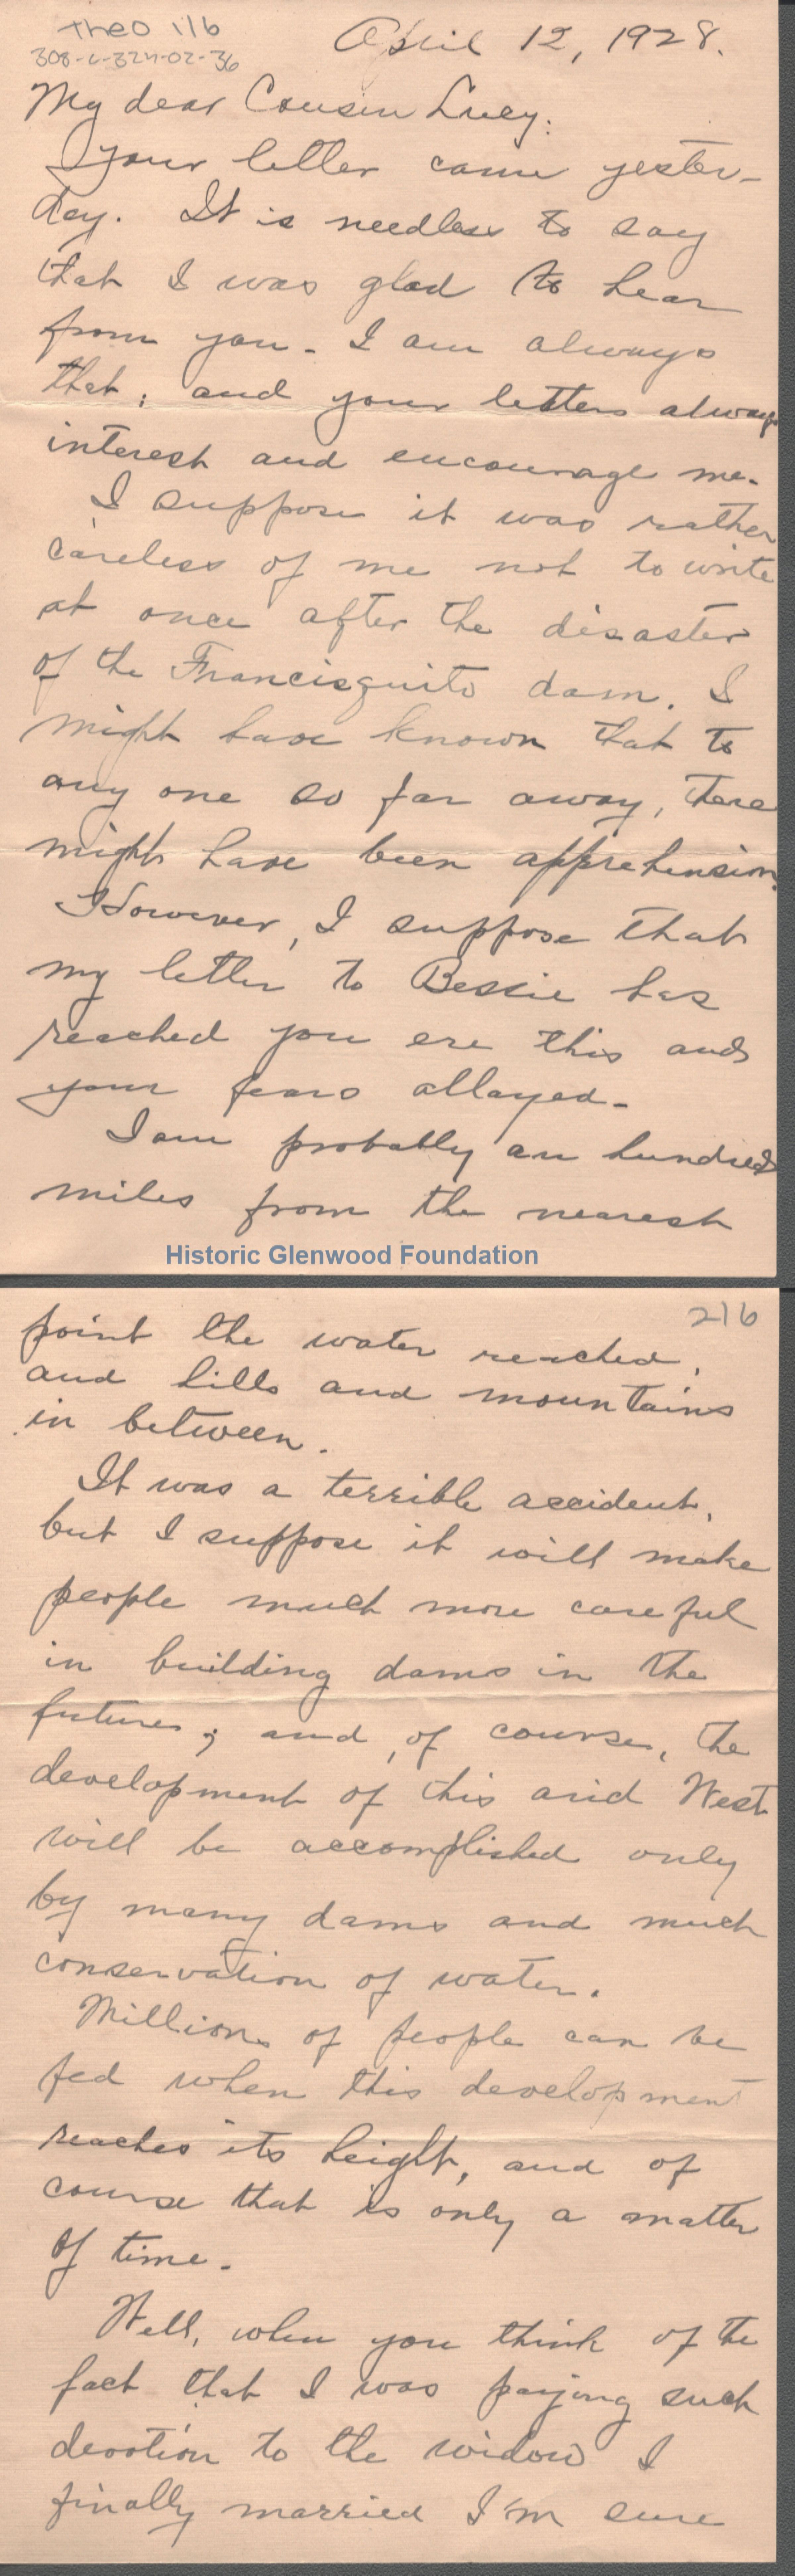 Theo 1/6
308-C-324-02-36
April 12, 1928.
My dear Cousin Lucy:
Your letter came yester-
day. It is needless to say
that I was glad to hear
from you. I am always
that; and your letters always
interest and encourage me.
I suppose it was rather
careless of me not to write
at once after the disaster
of the Francisquito dam. I
might have known that to
any one so far away, there
might have been apprehension.
However, I suppose that
my letter to Bessie has
reached you ere this and
your fears allayed.
I am probably an hundred
miles from the nearest
Historic Glenwood Foundation
2/6
point the water reached,
and hills and mountains
in between.
It was a terrible accident,
but I suppose it will make
people much more careful
in building dams in the
future; and, of course, the
development of this arid West
will be accomplished only
by many dams and much
conservation of water.
Millions of people can be
fed when this development
reaches its height, and of
course that is only a matter
of time.
Well, when you think of the
fact that I was paying such
devotion to the widow I
finally married I'm sure